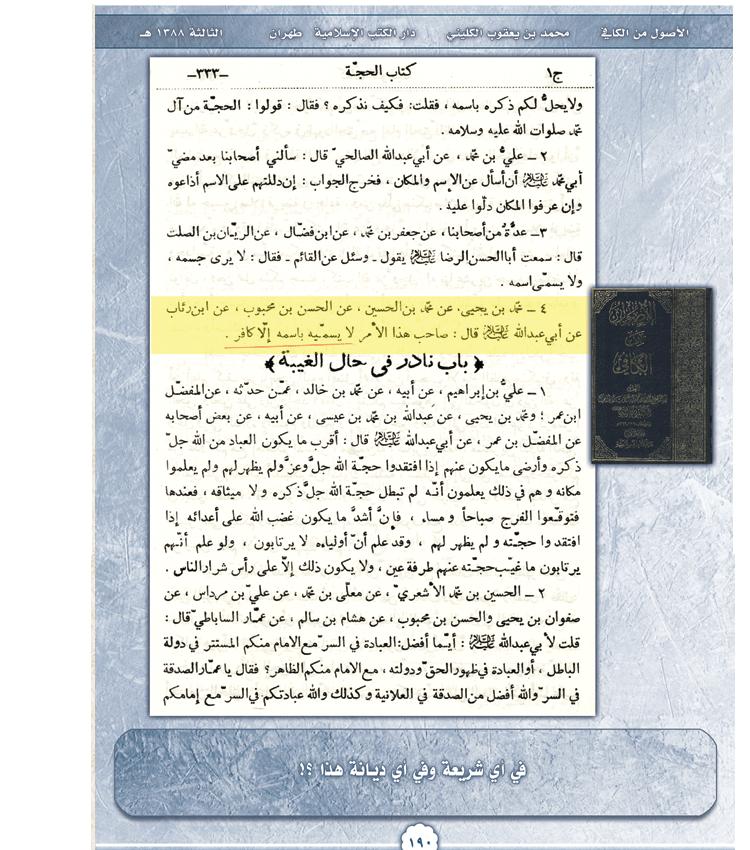 الأصول من الكافي محمد بن يعقوب الكليني دار الكتب الإسلامية طهران الثالثة ١٣٨٨ هـ
ج١ كتاب الحجّة -٣٣٣-
ولا يحلُّ لكم ذكره باسمه ، فقلت: فكيف نذكره ؟ فقال : قولوا : الحجّة من آل
محمّد صلوات الله عليه وسلامه .
٢ ـ عليُّ بن محمّد ، عن أبي عبدالله الصالحيّ قال : سألني أصحابنا بعد مضيّ
أبي محمّد عليه السلام أن أسأل عن الإسم والمكان ، فخرج الجواب : إن دللتهم على الاسم أذاعوه
وإن عرفوا المكان دلّوا عليه .
٣ـ عدَّةٌ من أصحابنا، عن جعفر بن محمّد ، عن ابن فضّال ، عن الريّان بن الصلت
قال : سمعت أبا الحسن الرضا عليه السلام يقول ـ وسئل عن القائم ـ فقال : لا يرى جسمه ،
ولا يسمّى اسمه .
٤ ـ محمّد بن يحيى، عن محمّد بن الحسين ، عن الحسن بن محبوب ، عن ابن رئاب
عن أبي عبدالله عليه السلام قال : صاحب هذا الأمر لا يسمّيه باسمه إلّا كافر .
﴿ باب نادر في حال الغيبة ﴾
١ ـ عليُّ بن إبراهيم ، عن أبيه ، عن محمّد بن خالد ، عمّن حدّثه ، عن المفضّل
ابن عمر ؛ ومحمّد بن يحيى ، عن عبدالله بن محمّد بن عيسى ، عن أبيه ، عن بعض أصحابه
عن المفضّل بن عمر ، عن أبي عبدالله عليه السلام قال : أقرب ما يكون العباد من الله جلّ
ذكره وأرضى ما يكون عنهم إذا افتقدوا حجّة الله جلَّ وعزَّ ولم يظهر لهم ولم يعلموا
مكانه و هم في ذلك يعلمون أنّه لم تبطل حجّة الله جلَّ ذكره و لا ميثاقه ، فعندها
فتوقّعوا الفرج صباحاً و مساء ، فإنَّ أشدَّ ما يكون غضب الله على أعدائه إذا
افتقدوا حجّته و لم يظهر لهم ، وقد علم أنّ أولياءه لا يرتابون ، ولو علم أنّهم
يرتابون ما غيّب حجّته عنهم طرفة عين ، ولا يكون ذلك إلّا على رأس شرار الناس .
٢ ـ الحسين بن محمّد الأشعريّ ، عن معلّى بن محمّد ، عن عليّ بن مرداس ، عن
صفوان بن يحيى والحسن بن محبوب ، عن هشام بن سالم ، عن عمّار الساباطي قال :
قلت لأبي عبدالله عليه السلام : أيّما أفضل: العبادة في السرّ مع الامام منكم المستتر في دولة
الباطل ، أو العبادة في ظهور الحقّ ودولته ، مع الامام منكم الظاهر؟ فقال يا عمّار الصدقة
في السرّ والله أفضل من الصدقة في العلانية وكذلك والله عبادتكم في السرّ مع إمامكم
الأصول
من
الكافي
في اي شريعة وفي اي ديانة هذا ؟!
١٩٠